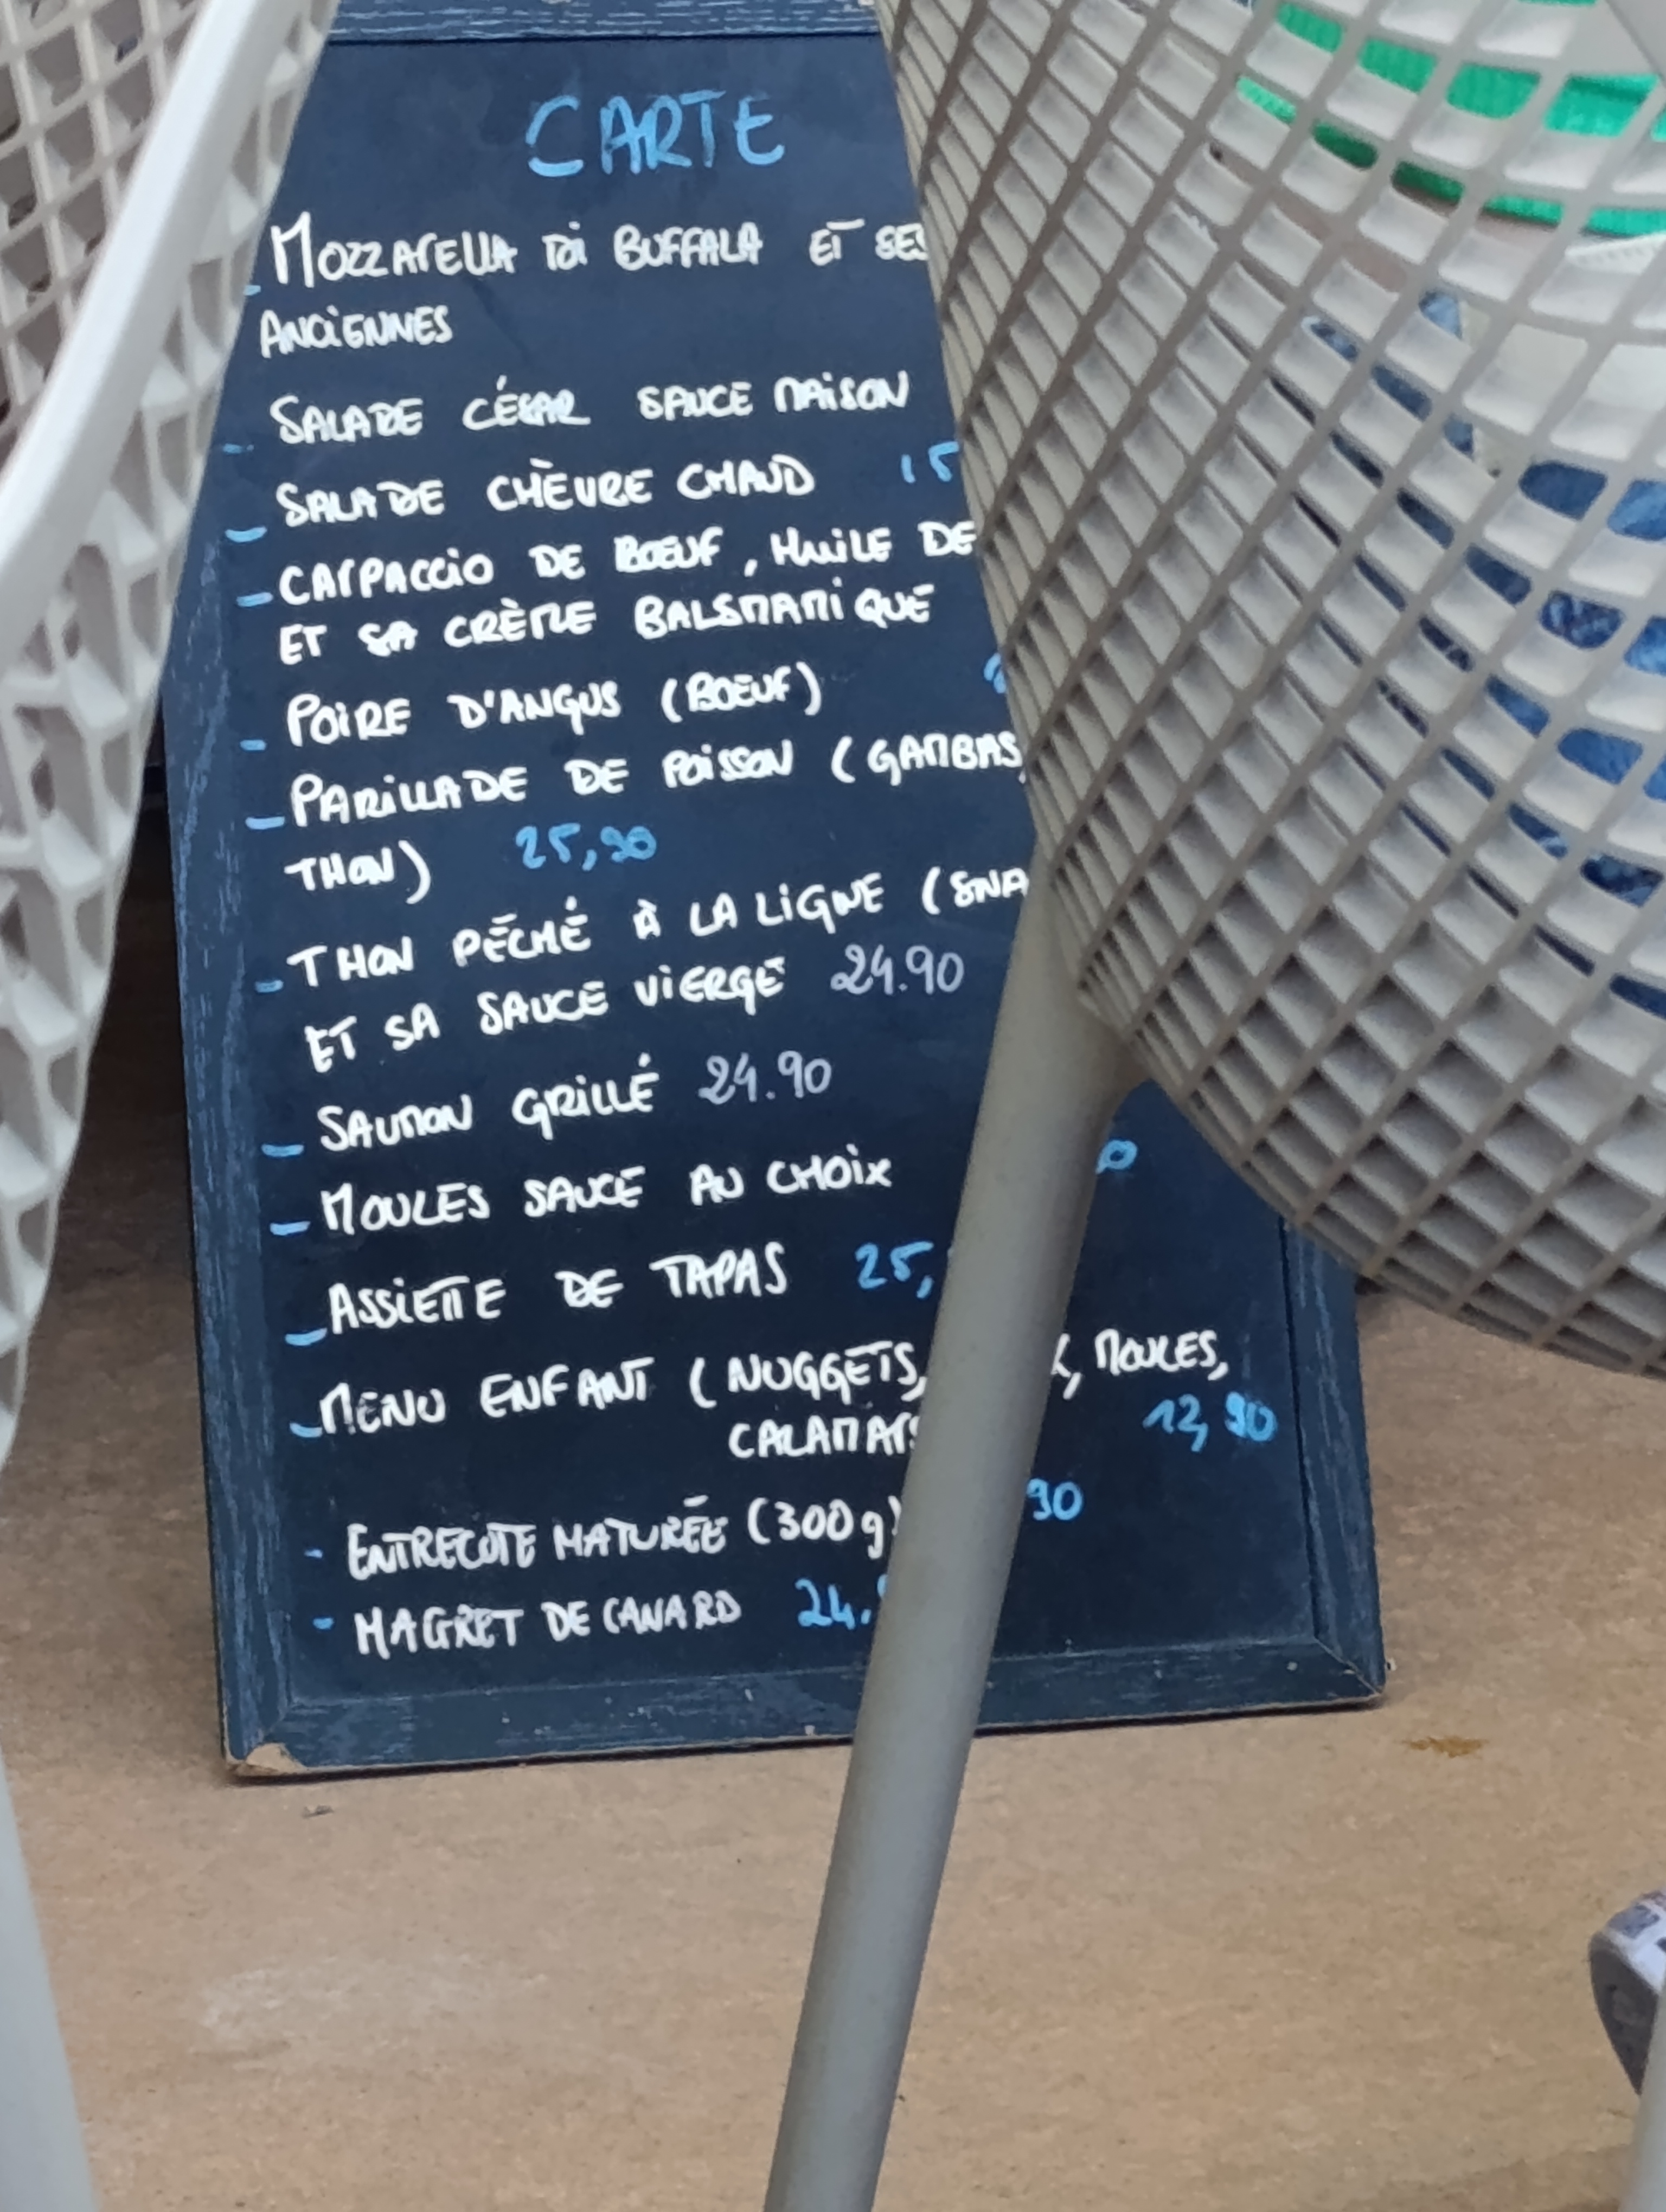 CARTE
- MOZZARELLA DI BUFFALA ET SES
ANCIENNES
- SALADE CÉSAR SAUCE MAISON
- SALADE CHÈVRE CHAUD 15
- CARPACCIO DE BŒUF, HUILE DE
ET SA CRÈME BALSMAMIQUE
- POIRE D'ANGUS (BOEUF)
- PARILLADE DE POISSON (GAMBAS,
THON) 25,90
- THON PÊCHÉ À LA LIGNE (
ET SA SAUCE VIERGE 24.90
- SAUMON GRILLÉ 24.90
- MOULES SAUCE AU CHOIX
- ASSIETTE DE TAPAS 25,
- MENU ENFANT (NUGGETS, MOULES,
CALAMARS 12,90
- ENTRECOTE MATURÉE (300g) 90
- MAGRET DE CANARD 24.